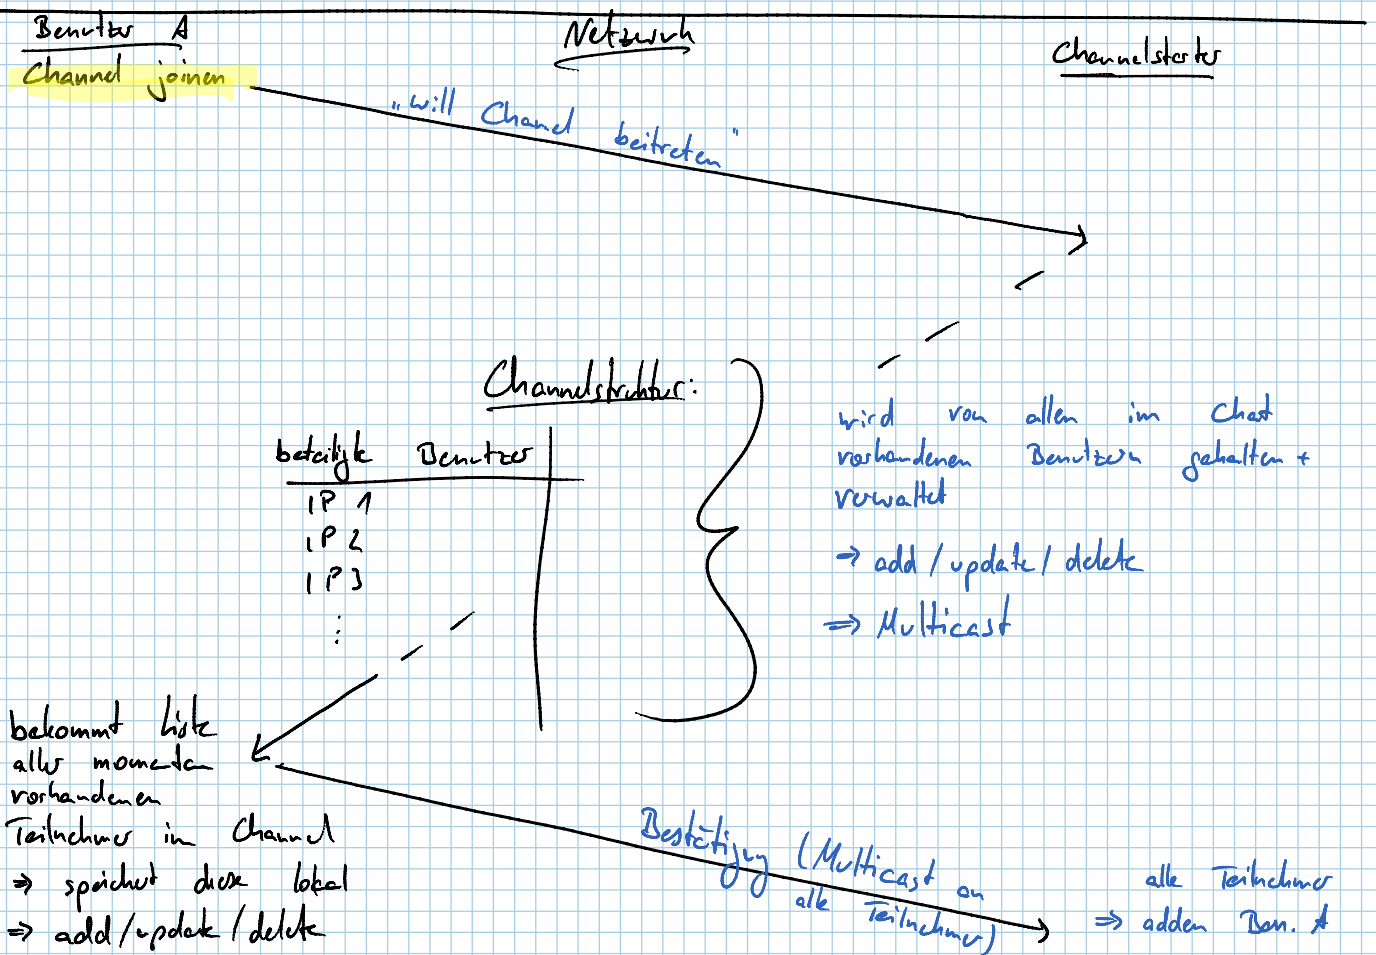 Benutzer A
Netzwerk
Channelstarter
Channel joinen
"will Channel beitreten"
Channelstruktur:
beteiligte Benutzer
IP 1
IP 2
IP 3
⋮
wird von allen im Chat
vorhandenen Benutzern gehalten +
verwaltet
⇒ add / update / delete
⇒ Multicast
bekommt Liste
aller momentan
vorhandenen
Teilnehmer im Channel
⇒ speichert diese lokal
⇒ add / update / delete
Bestätigung (Multicast an
alle Teilnehmer)
alle Teilnehmer
⇒ adden Ben. A